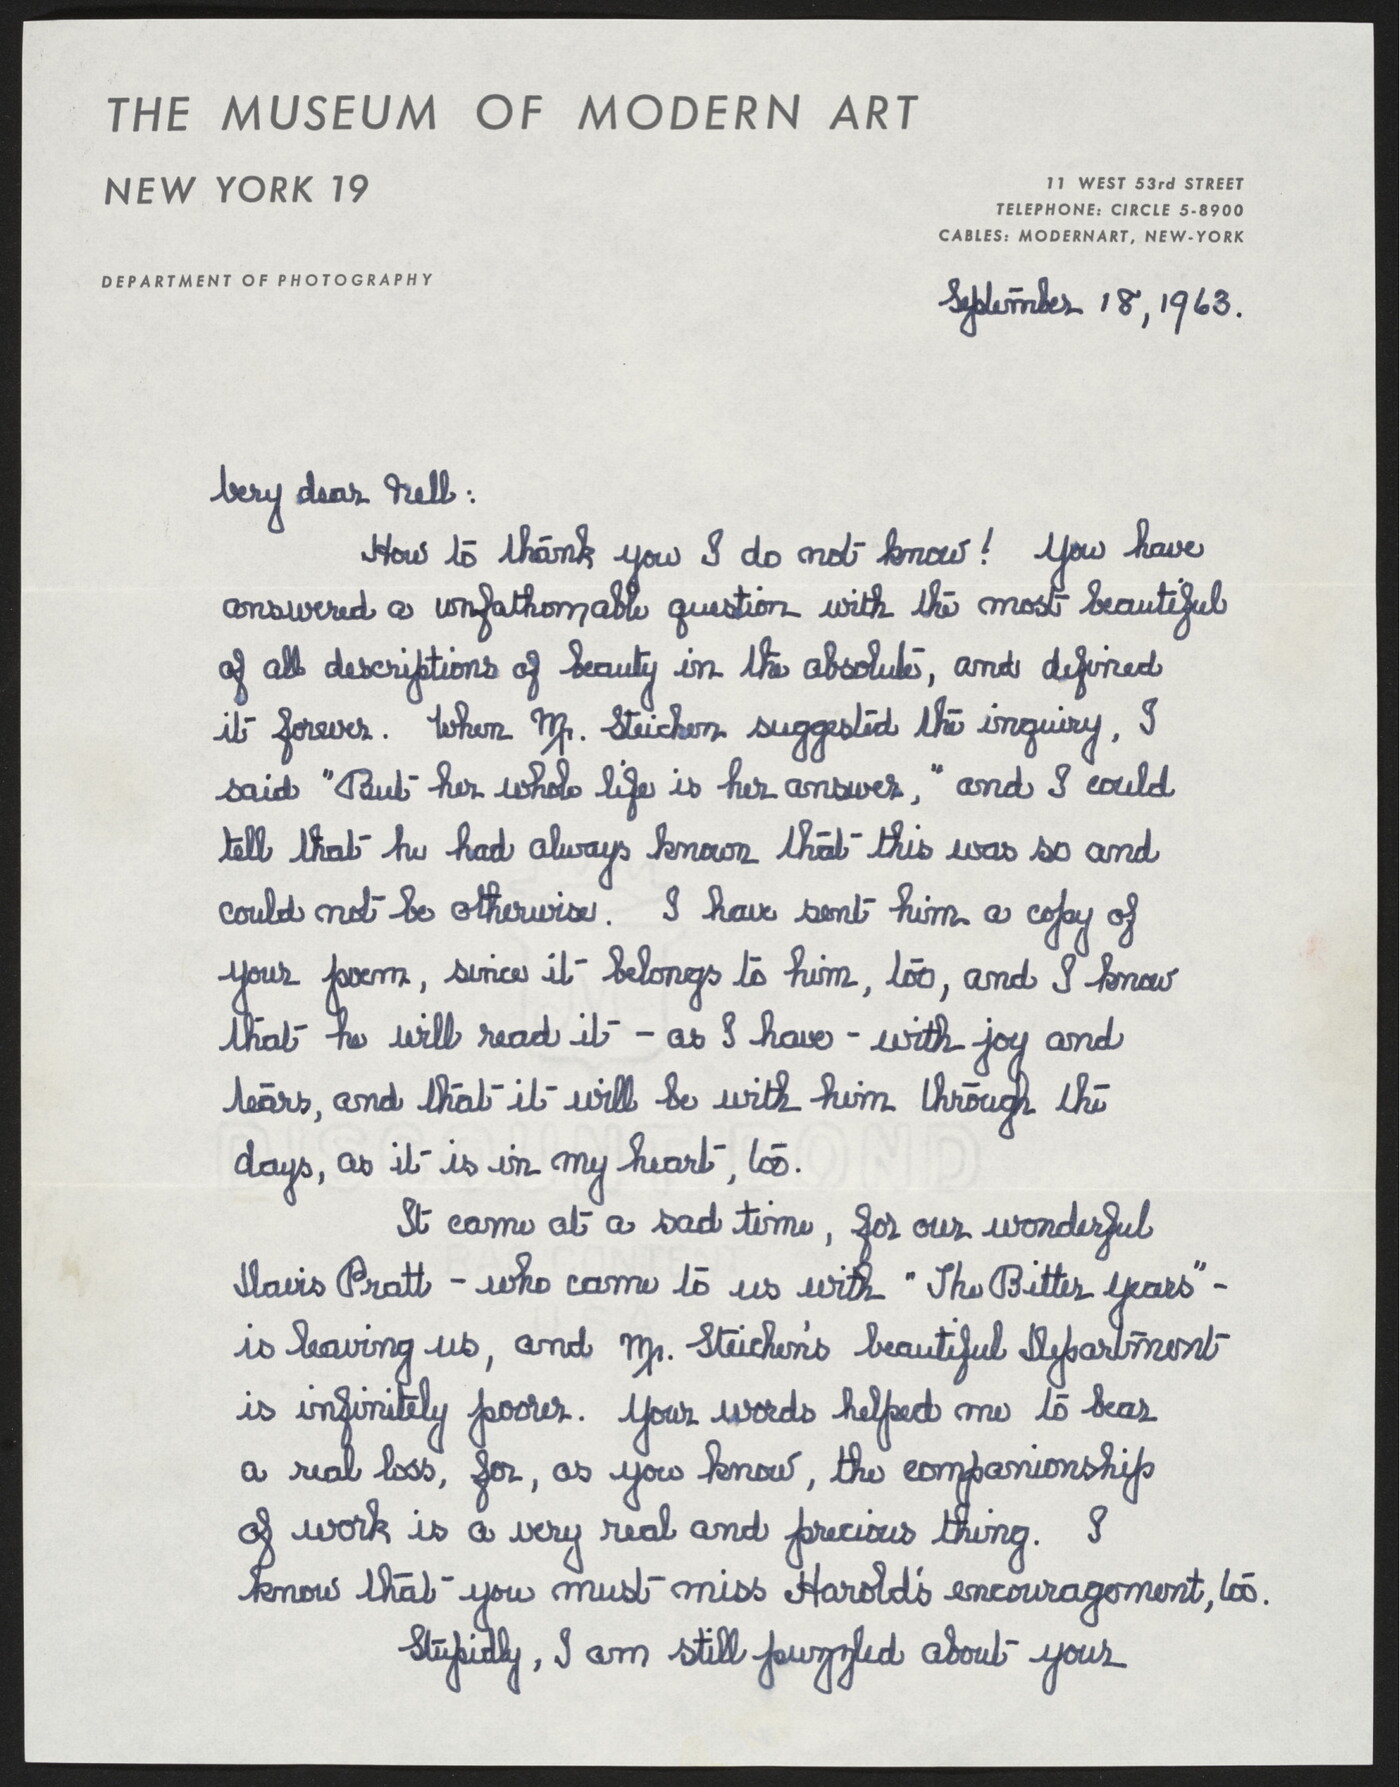 THE MUSEUM OF MODERN ART
NEW YORK 19
11 WEST 53rd STREET
TELEPHONE: CIRCLE 5-8900
CABLES: MODERNART, NEW-YORK
DEPARTMENT OF PHOTOGRAPHY
September 18, 1963.
Very dear Nell:
How to thank you I do not know! You have
answered a unfathomable question with the most beautiful
of all descriptions of beauty in the absolute, and defined
it forever. When Mr. Steichen suggested the inquiry, I
said "But her whole life is her answer," and I could
tell that he had always known that this was so and
could not be otherwise. I have sent him a copy of
your poem, since it belongs to him, too, and I know
that he will read it - as I have - with joy and
tears, and that it will be with him through the
days, as it is in my heart, too.
It came at a sad time, for our wonderful
Davis Pratt - who came to us with "The Bitter Years" -
is leaving us, and Mr. Steichen's beautiful Department
is infinitely poorer. Your words helped me to bear
a real loss, for, as you know, the companionship
of work is a very real and precious thing. I
know that you must miss Harold's encouragement, too.
Stupidly, I am still puzzled about your
DISCOUNT BOND
RAG CONTENT
U.S.A.